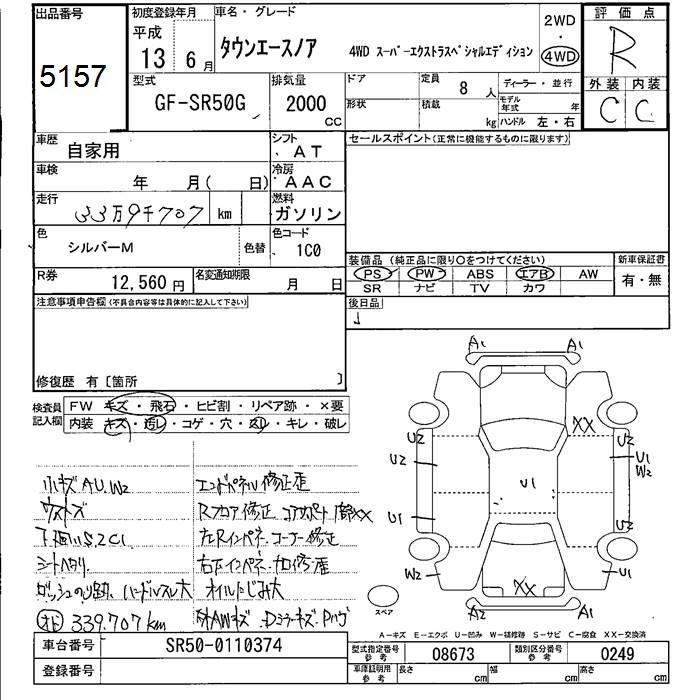 出品番号
5157
初度登録年月
平成
13 6月
車名・グレード
タウンエースノア 4WD スーパーエクストラスペシャルエディション
2WD
・
4WD
評価点
R
外装 内装
C C
型式
GF-SR50G
排気量
2000
CC
ドア
形状
定員
8 人
積載
kg
ディーラー・並行
モデル年式 年
ハンドル 左・右
車歴
自家用
シフト
AT
車検
年 月( 日)
冷房
AAC
走行
33万9千707 km
燃料
ガソリン
色
シルバーM
色替
色コード
1C0
R券
12,560 円
名変通知期限
月 日
セールスポイント(正常に機能するものに限ります)
装備品 (純正品に限り○をつけてください)
PS PW ABS エアB AW
SR ナビ TV カワ
新車保証書
有・無
後日品
注意事項申告欄(不具合内容等は具体的に記入して下さい)
修復歴 有〔箇所 〕
検査員記入欄
FW キズ・飛石・ヒビ割・リペア跡・×要
内装 キズ・汚レ・コゲ・穴・凹レ・キレ・破レ
小キズ AU.W2
下廻りS2C1
シートヘタリ
ダッシュのり跡、ハンドルスレ大
339.707km
エンドパネル修正歪
Rフロア修正
左Rインパネ、コーナー修正
オイルにじみ大
A1 A1
XX
U2 U2
U2 U1
W2
U1
U1 U2
W2 U1
XX
A2 A1
スペア
A-キズ E-エクボ U-凹み W-補修跡 S-サビ C-腐食 XX-交換済
車台番号
SR50-0110374
登録番号
型式指定番号
参考
08673
類別区分番号
参考
0249
車庫証明用
参考
長さ cm 幅 cm 高さ cm